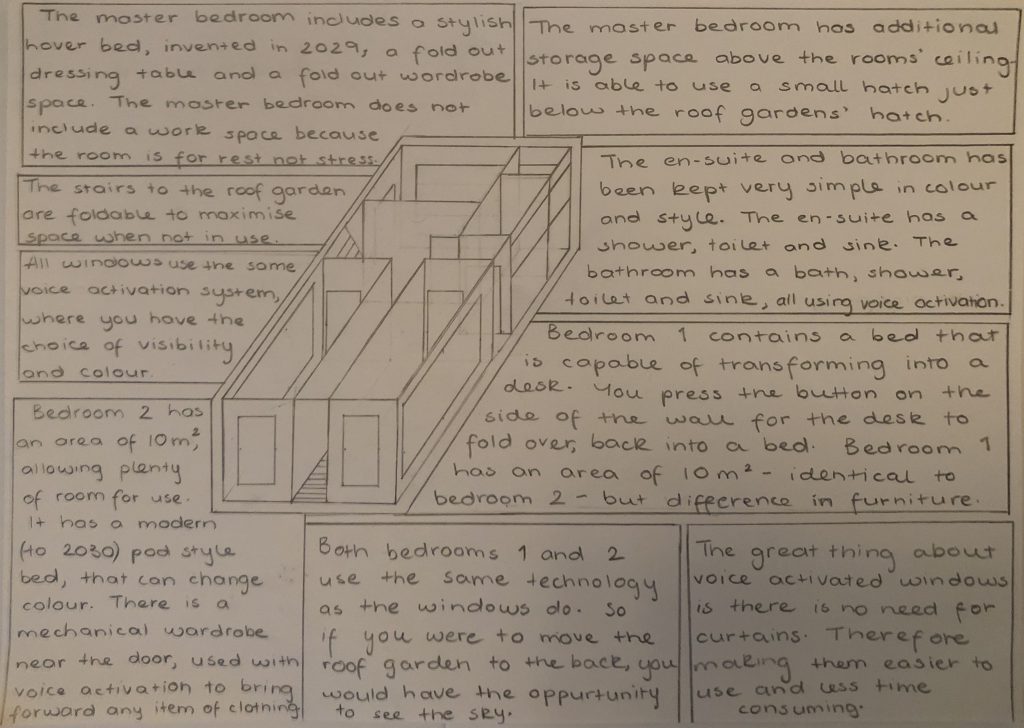 The master bedroom includes a stylish
hover bed, invented in 2029, a fold out
dressing table and a fold out wardrobe
space. The master bedroom does not
include a work space because
the room is for rest not stress.
The master bedroom has additional
storage space above the rooms' ceiling.
It is able to use a small hatch just
below the roof gardens' hatch.
The stairs to the roof garden
are foldable to maximise
space when not in use.
The en-suite and bathroom has
been kept very simple in colour
and style. The en-suite has a
shower, toilet and sink. The
bathroom has a bath, shower,
toilet and sink, all using voice activation.
All windows use the same
voice activation system,
where you have the
choice of visibility
and colour.
Bedroom 1 contains a bed that
is capable of transforming into a
desk. You press the button on the
side of the wall for the desk to
fold over, back into a bed. Bedroom 1
has an area of 10m² - identical to
bedroom 2 - but difference in furniture.
Bedroom 2 has
an area of 10m²,
allowing plenty
of room for use.
It has a modern
(to 2030) pod style
bed, that can change
colour. There is a
mechanical wardrobe
near the door, used with
voice activation to bring
forward any item of clothing
Both bedrooms 1 and 2
use the same technology
as the windows do. So
if you were to move the
roof garden to the back, you
would have the oppurtunity
to see the sky.
The great thing about
voice activated windows
is there is no need for
curtains. Therefore
making them easier to
use and less time
consuming.